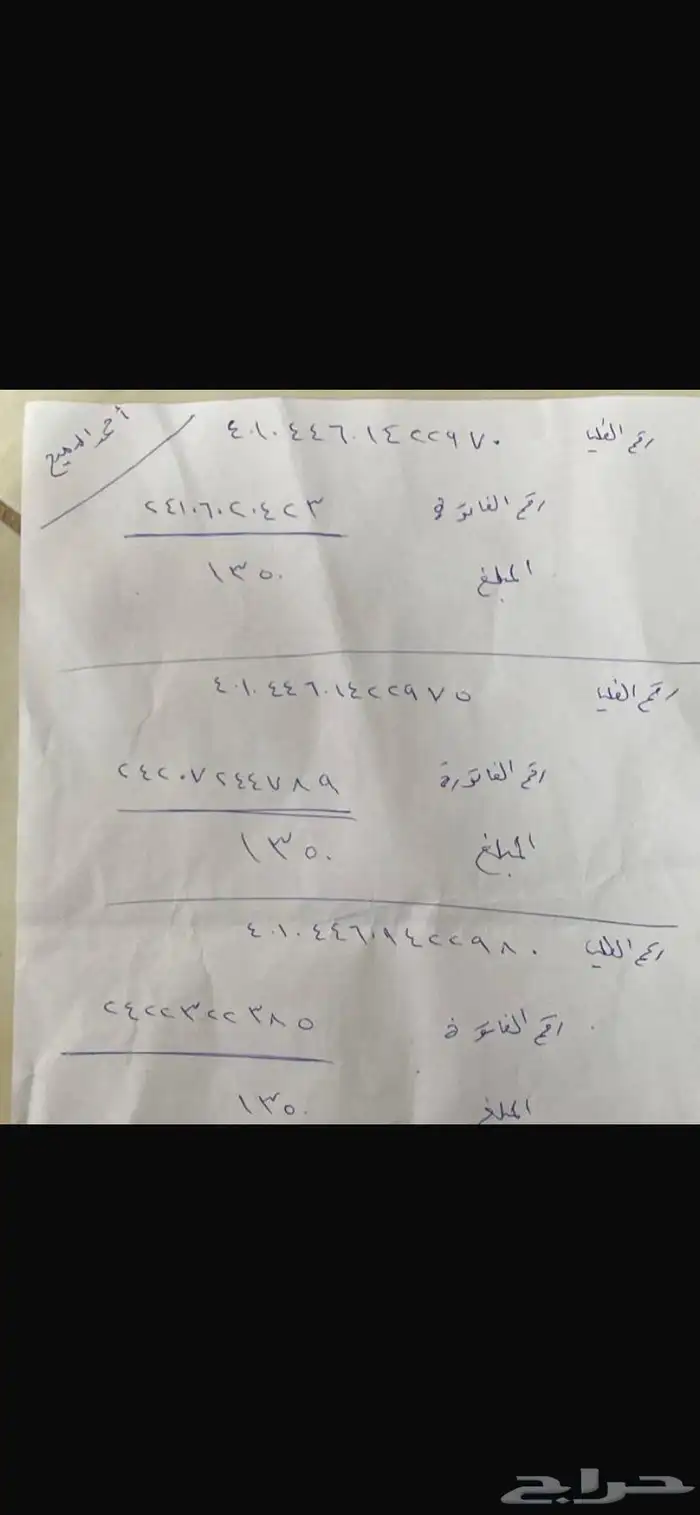 أحمد الدميح
رقم الطلب ٤٠١٠٤٤٦٠١٤٢٢٩٧٠
رقم الفاتورة ٢٤١٠٦٠٢٠٤٢٣
المبلغ ١٣٥٠
رقم الطلب ٤٠١٠٤٤٦٠١٤٢٢٩٧٥
رقم الفاتورة ٢٤٢٠٧٢٤٤٧٨٩
المبلغ ١٣٥٠
رقم الطلب ٤٠١٠٤٤٦٠١٤٢٢٩٨٠
رقم الفاتورة ٢٤٢٢٣٢٢٣٨٥
المبلغ ١٣٥٠
حراج